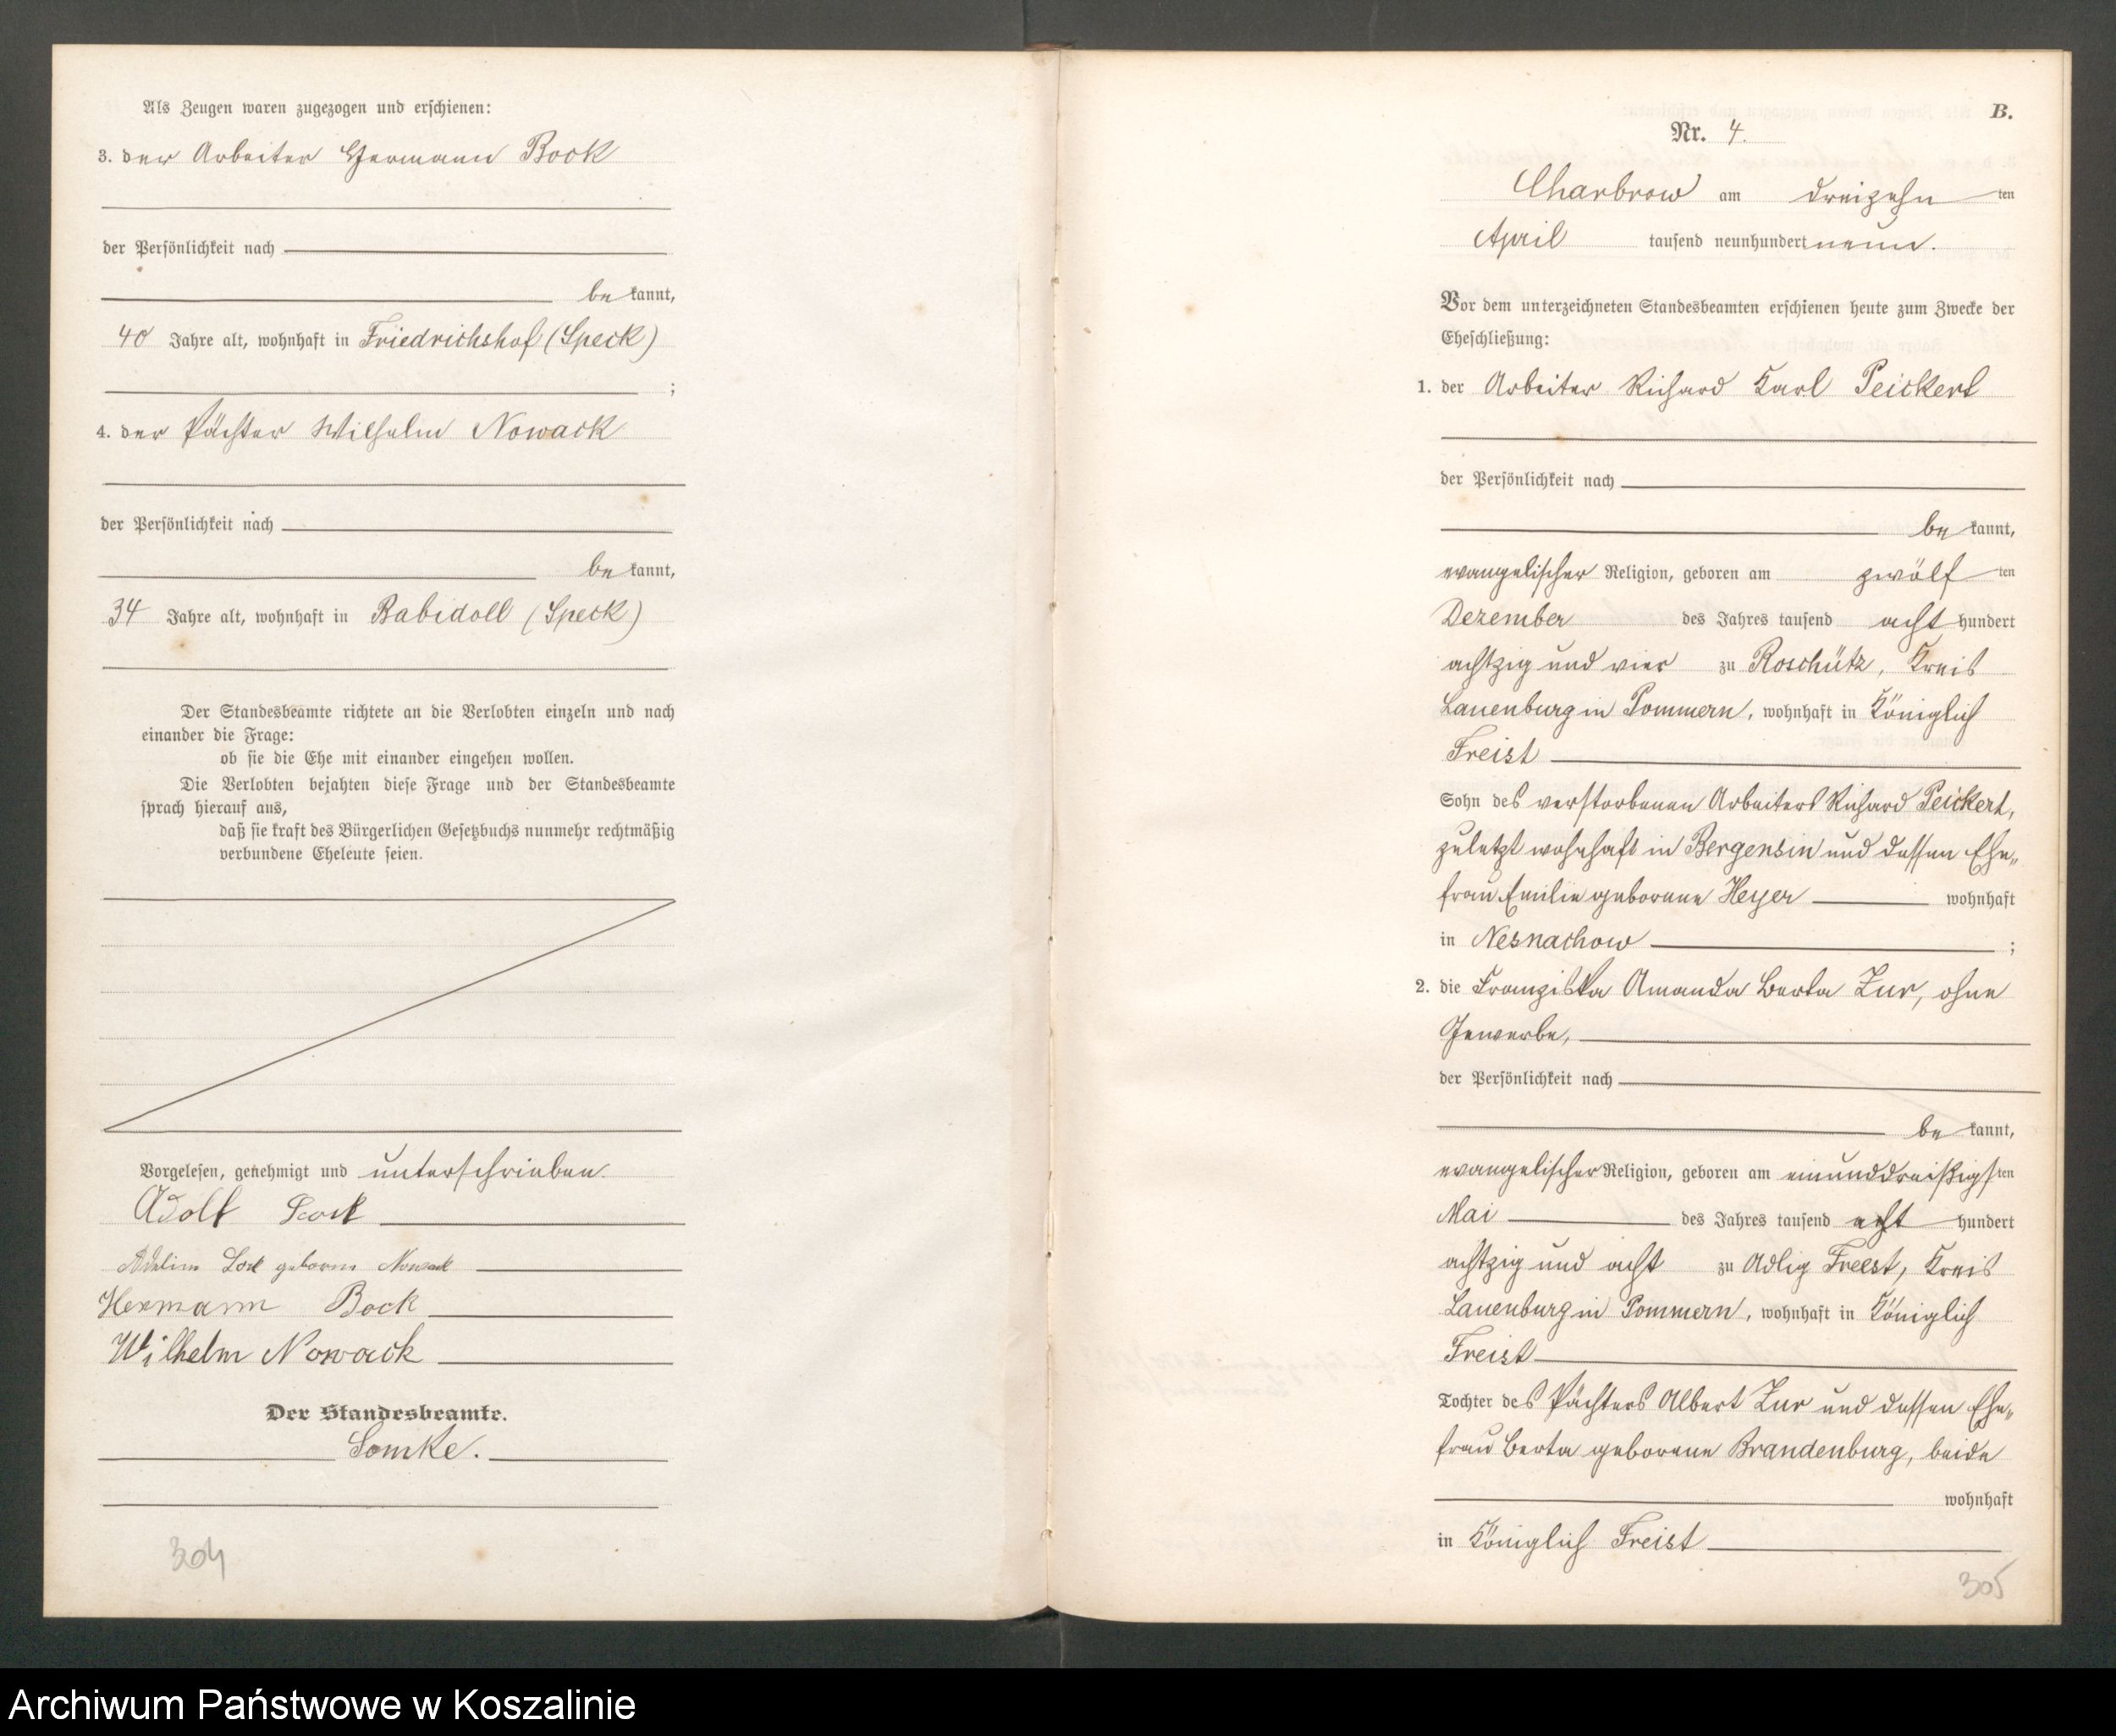 Als Zeugen waren zugezogen und erschienen:
3. der Arbeiter Hermann Bock
der Persönlichkeit nach
be kannt,
40 Jahre alt, wohnhaft in Friedrichshof (Speck)
;
4. der Pächter Wilhelm Nowack
der Persönlichkeit nach
be kannt,
34 Jahre alt, wohnhaft in Babidoll (Speck)
Der Standesbeamte richtete an die Verlobten einzeln und nach
einander die Frage:
ob sie die Ehe mit einander eingehen wollen.
Die Verlobten bejahten diese Frage und der Standesbeamte
sprach hierauf aus,
daß sie kraft des Bürgerlichen Gesetzbuchs nunmehr rechtmäßig
verbundene Eheleute seien.
Vorgelesen, genehmigt und unterschrieben.
Adolf
geborne Nowack
Hermann Bock
Wilhelm Nowack
Der Standesbeamte.
Lomke.
304
B.
Nr. 4.
Charbrow am dreizehn ten
April tausend neunhundert neun.
Vor dem unterzeichneten Standesbeamten erschienen heute zum Zwecke der
Eheschließung:
1. der Arbeiter Richard Karl Peickert
der Persönlichkeit nach
be kannt,
evangelischer Religion, geboren am zwölf ten
Dezember des Jahres tausend acht hundert
achtzig und vier zu Roschütz, Kreis
Lauenburg in Pommern, wohnhaft in Königlich
Freist
Sohn des verstorbenen Arbeiters Richard Peickert,
zuletzt wohnhaft in Bergensin und dessen Ehe„
frau Emilie geborene Heyer wohnhaft
in Nesnachow ;
2. die Franziska Amanda Berta Zur, ohne
Gewerbe,
der Persönlichkeit nach
be kannt,
evangelischer Religion, geboren am einunddreißigs ten
Mai des Jahres tausend acht hundert
achtzig und acht zu Adlig Freest, Kreis
Lauenburg in Pommern, wohnhaft in Königlich
Freist
Tochter des Pächters Albert Zur und dessen Ehe„
frau Berta geborene Brandenburg, beide
wohnhaft
in Königlich Freist
305
Archiwum Państwowe w Koszalinie